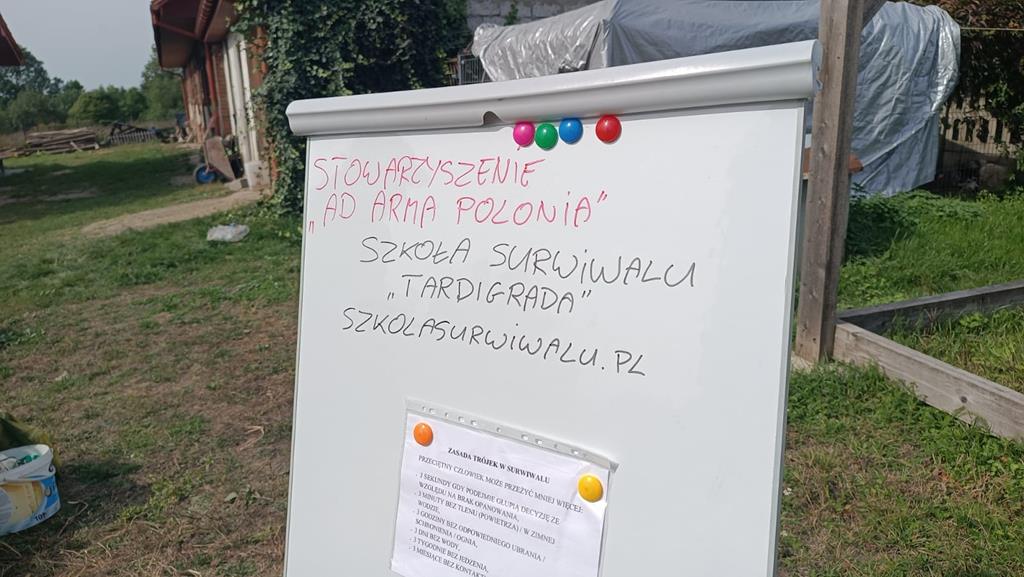 STOWARZYSZENIE
„AD ARMA POLONIA"
SZKOŁA SURWIWALU
„TARDIGRADA"
SZKOLASURWIWALU.PL
ZASADA TRÓJEK W SURWIWALU
PRZECIĘTNY CZŁOWIEK MOŻE PRZEŻYĆ MNIEJ WIĘCEJ:
- 3 SEKUNDY GDY PODEJMIE GŁUPIĄ DECYZJĘ ZE
WZGLĘDU NA BRAK OPANOWANIA,
- 3 MINUTY BEZ TLENU (POWIETRZA) / W ZIMNEJ
WODZIE,
- 3 GODZINY BEZ ODPOWIEDNIEGO UBRANIA /
SCHRONIENIA / OGNIA,
- 3 DNI BEZ WODY,
- 3 TYGODNIE BEZ JEDZENIA,
- 3 MIESIĄCE BEZ